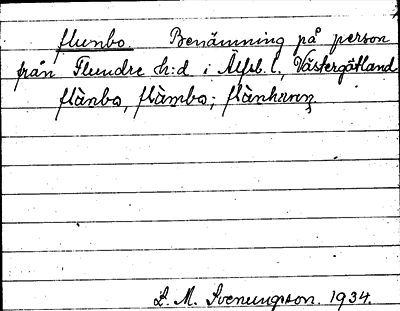 flunbo. Benämning på person
från Flundre h:d i Älfsb. l., Västergötland
flànbo, flàmbo;
L. M. Svenungsson. 1934.